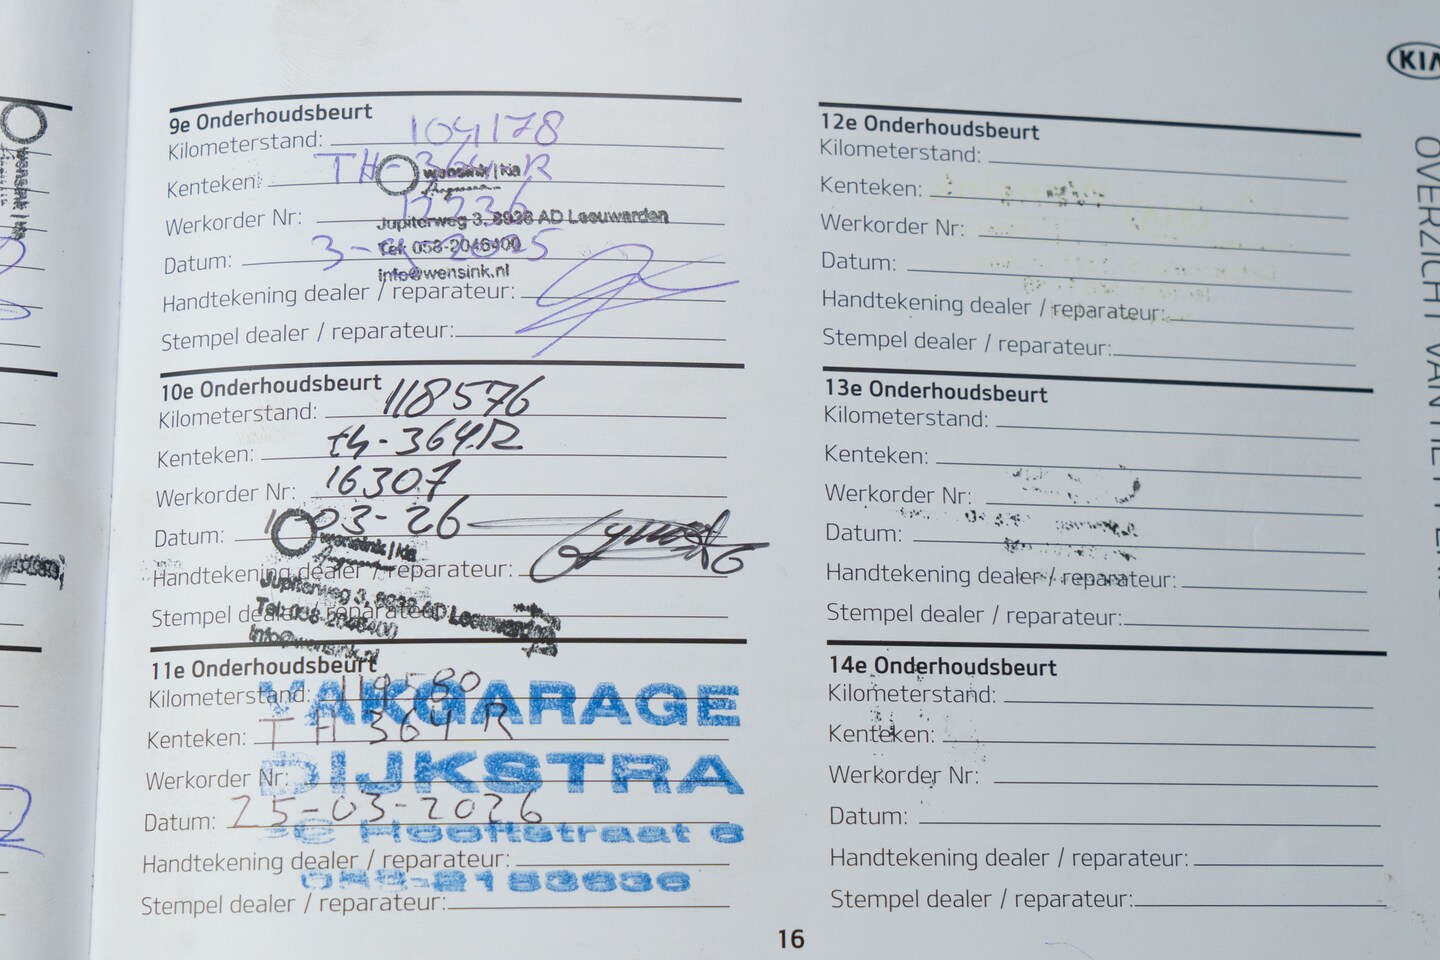 KIA
OVERZICHT VAN HET
9e Onderhoudsbeurt
Kilometerstand: 104178
Kenteken: TH-364-R
wensink | kia
Werkorder Nr: 12236
Jupiterweg 3, 8938 AD Leeuwarden
Tel: 058-2046400
Datum: 3-4-2025
info@wensink.nl
Handtekening dealer / reparateur:
Stempel dealer / reparateur:
10e Onderhoudsbeurt
Kilometerstand: 118576
Kenteken: th-364.R
Werkorder Nr: 16307
Datum: 03-26
wensink | kia
Handtekening dealer / reparateur:
Jupiterweg 3, 8938 AD Leeuwarden
Stempel dealer / reparateur:
Tel: 058-2046400
info@wensink.nl
11e Onderhoudsbeurt
Kilometerstand: 119580
VAKGARAGE
Kenteken: TH 364 R
Werkorder Nr:
DIJKSTRA
Datum: 25-03-2026
PC Hooftstraat 6
Handtekening dealer / reparateur:
Stempel dealer / reparateur:
12e Onderhoudsbeurt
Kilometerstand:
Kenteken:
Werkorder Nr:
Datum:
Handtekening dealer / reparateur:
Stempel dealer / reparateur:
13e Onderhoudsbeurt
Kilometerstand:
Kenteken:
Werkorder Nr:
Datum:
Handtekening dealer / reparateur:
Stempel dealer / reparateur:
14e Onderhoudsbeurt
Kilometerstand:
Kenteken:
Werkorder Nr:
Datum:
Handtekening dealer / reparateur:
Stempel dealer / reparateur:
16